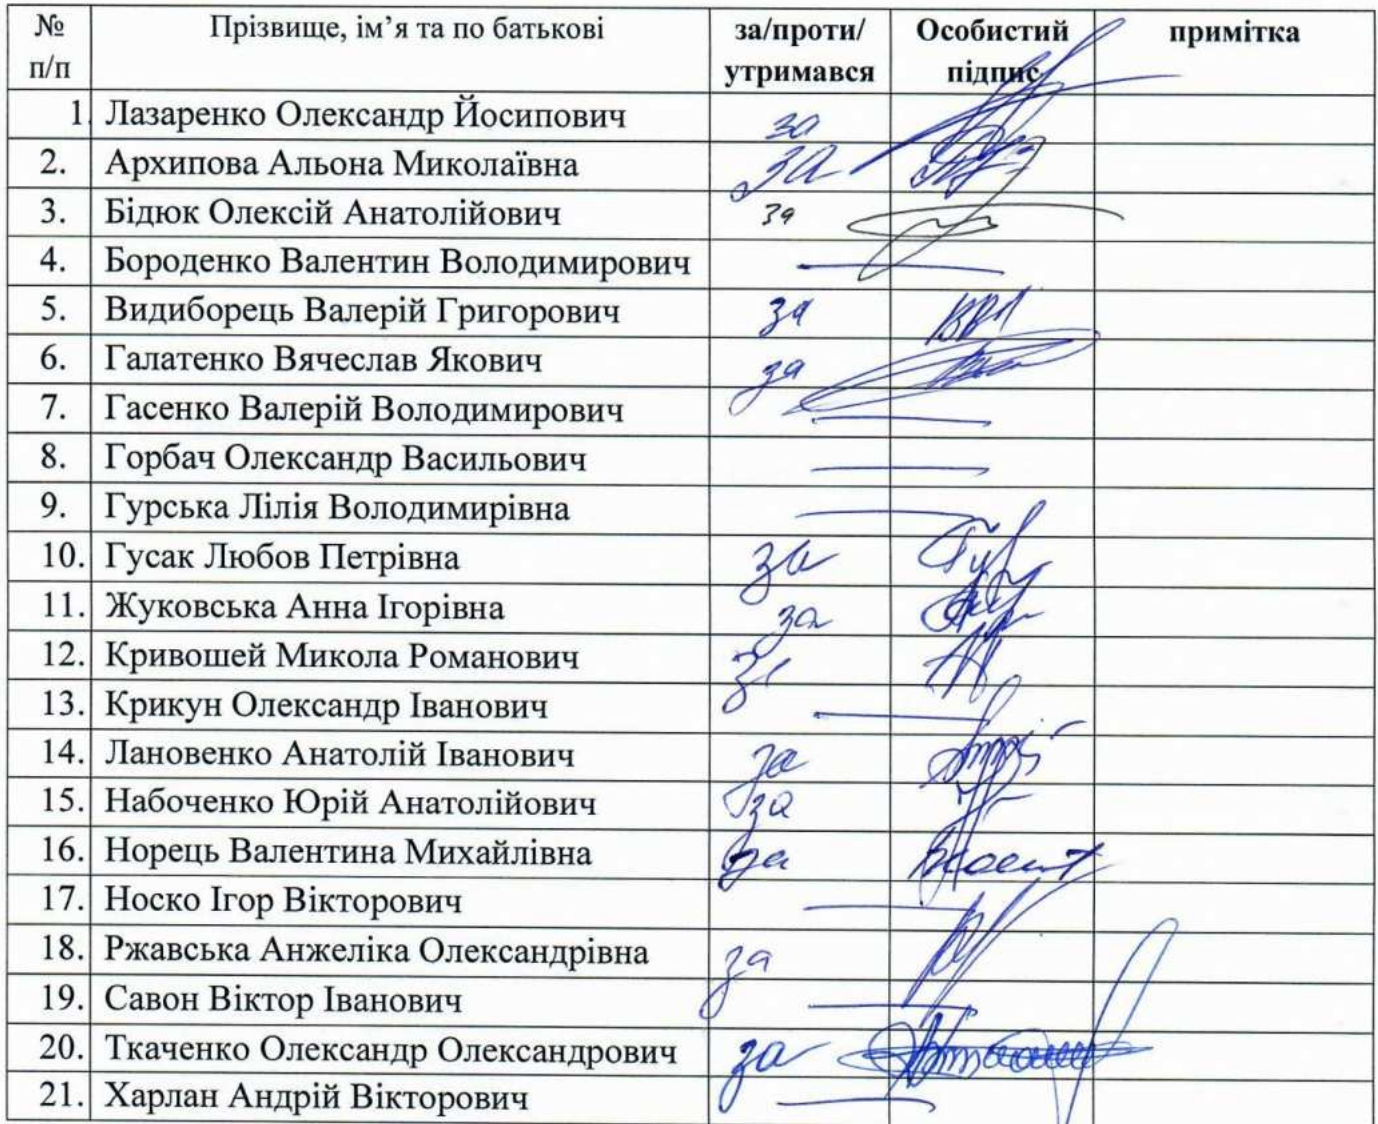 № п/п Прізвище, ім’я та по батькові за/проти/утримався Особистий підпис примітка
1. Лазаренко Олександр Йосипович за
2. Архипова Альона Миколаївна за
3. Бідюк Олексій Анатолійович за
4. Бороденко Валентин Володимирович
5. Видиборець Валерій Григорович за
6. Галатенко Вячеслав Якович за
7. Гасенко Валерій Володимирович
8. Горбач Олександр Васильович
9. Гурська Лілія Володимирівна
10. Гусак Любов Петрівна за
11. Жуковська Анна Ігорівна за
12. Кривошей Микола Романович за
13. Крикун Олександр Іванович
14. Лановенко Анатолій Іванович за
15. Набоченко Юрій Анатолійович за
16. Норець Валентина Михайлівна за
17. Носко Ігор Вікторович
18. Ржавська Анжеліка Олександрівна за
19. Савон Віктор Іванович
20. Ткаченко Олександр Олександрович за
21. Харлан Андрій Вікторович